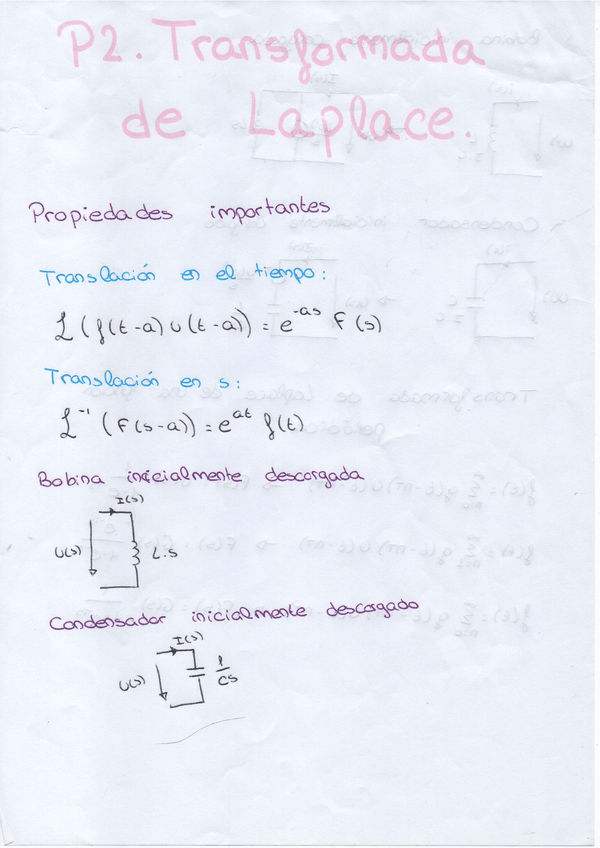 P2. Transformada
de Laplace.
Propiedades importantes
Translación en el tiempo:
ℒ(f(t-a)u(t-a)) = e^-as F(s)
Translación en s:
ℒ^-1 (F(s-a)) = e^at f(t)
Bobina inicialmente descargada
I(s)
U(s) L.s
Condensador inicialmente descargado
I(s)
U(s) 1/Cs